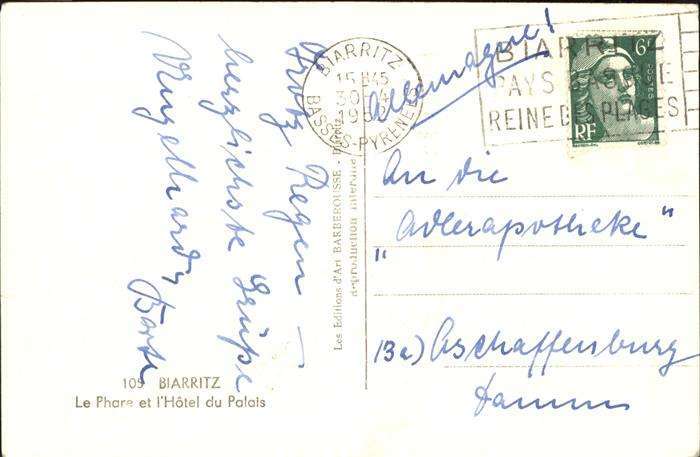 Trotz Regen —
herzlichste Grüße
109 BIARRITZ
Le Phare et l'Hôtel du Palais
Les Editions d'Art BARBEROUSSE -
Reproduction interdite
BIARRITZ
15 H45
30
BASSES-PYRENEES
BIARRITZ
PAYS BASQUE
REINE DES PLAGES
6F
POSTES
RF
Allemagne!
An die
"Adlerapotheke"
13a) Aschaffenburg